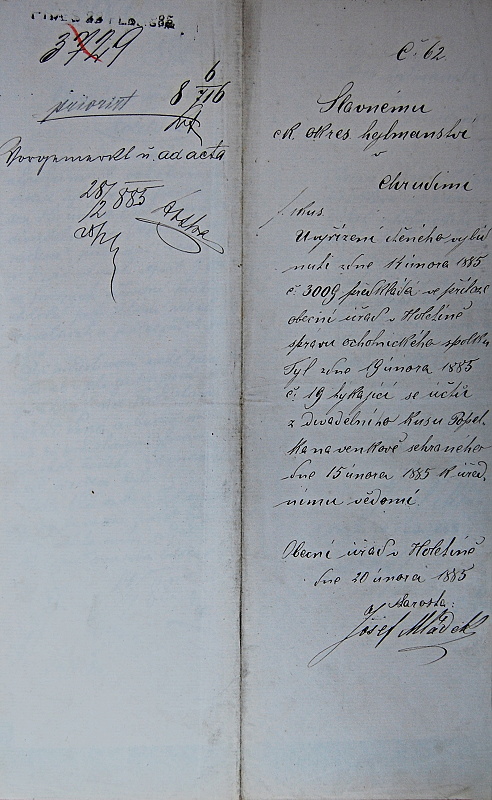 3729
priorit
8 6/716
Vorgemerkt u. ad acta
28/2 885
28/2
Č. 62
Slavnému
ck. okres. hejtmanství
v
Chrudimi
U vyřízení ctěného vybíd
nutí ze dne 14 února 1885
č. 3009 předkládá v příloze
obecní úřad v Holetíně
zprávu ochotnického spolku
Tyl ze dne 19 února 1885
č. 19 týkající se účtů
z divadelního kusu Popel-
ka na venkově sehraného
dne 15 února 1885 k úřed-
nímu vědomí.
Obecní úřad v Holetíně
dne 20 února 1885
starosta:
Josef Mládek